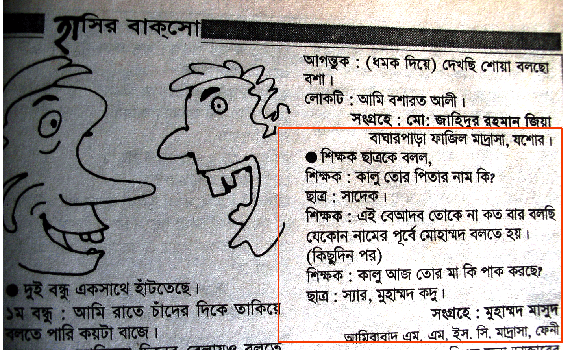 হাসির বাক্সো
● দুই বন্ধু একসাথে হাঁটতেছে।
১ম বন্ধু : আমি রাতে চাঁদের দিকে তাকিয়ে
বলতে পারি কয়টা বাজে।
আগন্তুক : (ধমক দিয়ে) দেখছি শোয়া বলছো
বশা।
লোকটি : আমি বশারত আলী।
সংগ্রহে : মো: জাহিদুর রহমান জিয়া
বাঘারপাড়া ফাজিল মাদ্রাসা, যশোর।
● শিক্ষক ছাত্রকে বলল,
শিক্ষক : কালু তোর পিতার নাম কি?
ছাত্র : সাদেক।
শিক্ষক : এই বেআদব তোকে না কত বার বলছি
যেকোন নামের পূর্বে মোহাম্মদ বলতে হয়।
(কিছুদিন পর)
শিক্ষক : কালু আজ তোর মা কি পাক করছে?
ছাত্র : স্যার, মুহাম্মদ কদু।
সংগ্রহে : মুহাম্মদ মাসুদ
আমিরাবাদ এম, এম, ইস. সি. মাদ্রাসা, ফেনী